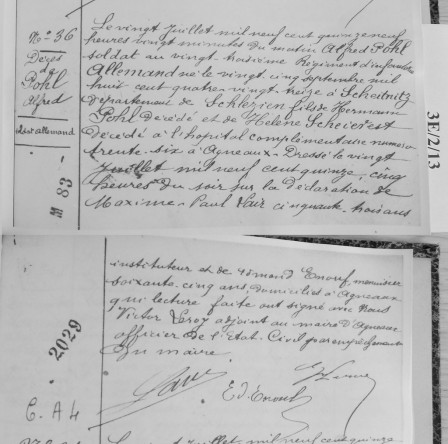 No 36
Décès
Pohl
Alfred
sujet allemand
M 83 -
Le vingt Juillet mil neuf cent quinze, neuf
heures vingt minutes du matin Alfred Pohl
soldat au vingt troisième Régiment d'infanterie
Allemand né le vingt cinq septembre mil
huit cent quatre-vingt treize à Scheitnitz
département de Schlezien fils de Hermann
Pohl décédé et de Hélène Scheierest
Décédé à l'hôpital complémentaire numéro
trente-six à Agneaux - Dressé le vingt
Juillet mil neuf cent quinze, cinq
heures du soir sur la déclaration de
Maxime-Paul Vair cinquante-trois ans
3E/2/13
instituteur et de Enouf, menuisier
soixante-cinq ans, domiciliés à Agneaux
qui lecture faite ont signé avec Nous
Victor Leroy adjoint au maire d'Agneaux
officier de l'Etat-Civil par empêchement
du maire.
Ed. Enouf
2029
E. A 4
juillet mil neuf cent quinze